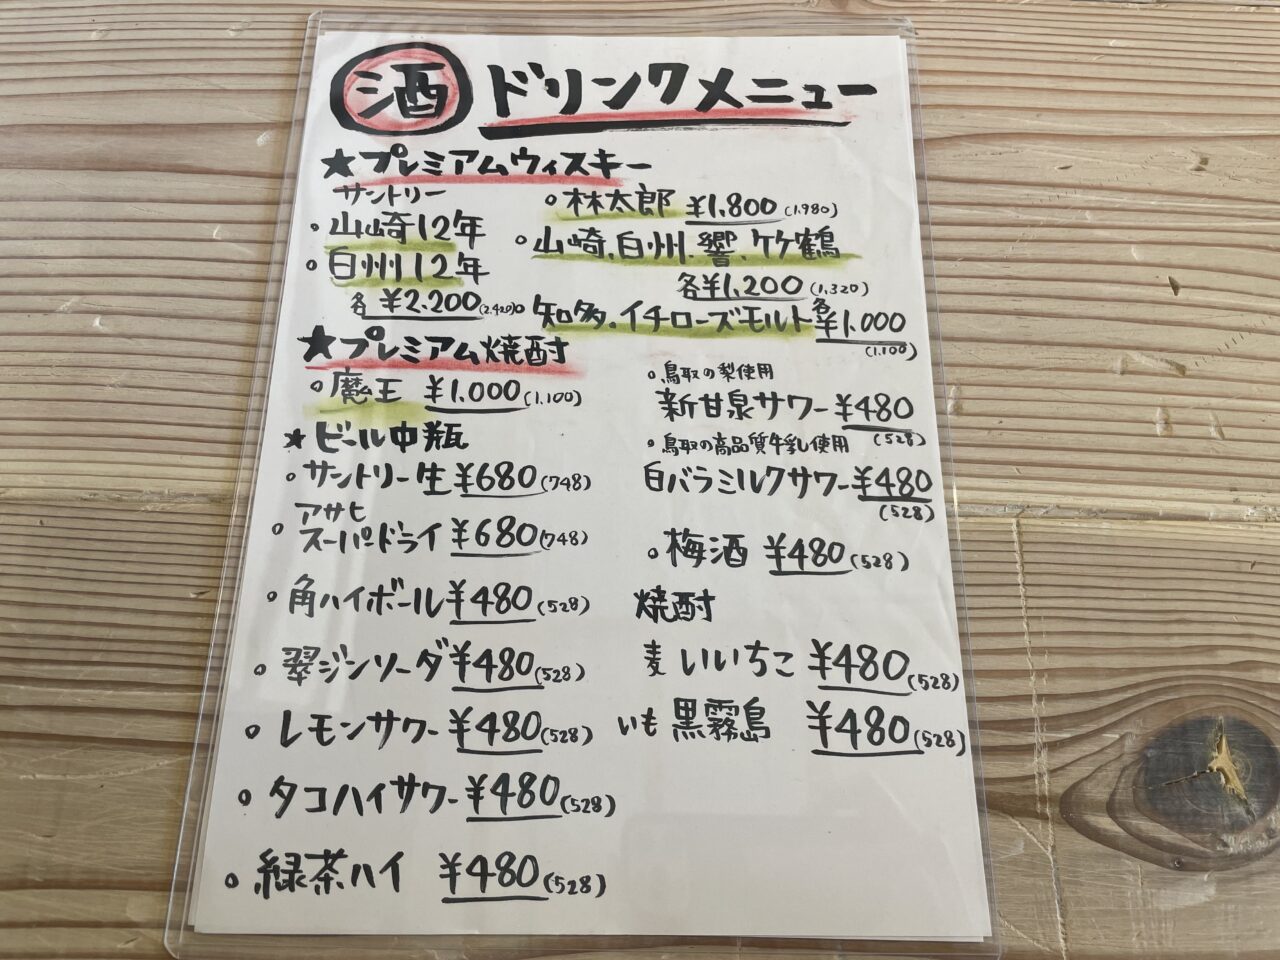 酒 ドリンクメニュー
★プレミアムウィスキー
サントリー
。山崎12年
。白州12年
各 ¥2.200(2.420)
。林太郎 ¥1.800(1.980)
。山崎.白州.響.竹鶴
各¥1.200(1.320)
。知多.イチローズモルト各¥1.000
(1.100)
★プレミアム焼酎
。魔王 ¥1.000(1.100)
★ビール中瓶
。サントリー生¥680(748)
。アサヒ
スーパードライ ¥680(748)
。角ハイボール¥480(528)
。翠ジンソーダ¥480(528)
。レモンサワー¥480(528)
。タコハイサワー¥480(528)
。緑茶ハイ ¥480(528)
。鳥取の梨使用
新甘泉サワー¥480
(528)
。鳥取の高品質牛乳使用
白バラミルクサワー¥480
(528)
。梅酒 ¥480(528)
焼酎
麦 いいちこ ¥480(528)
いも 黒霧島 ¥480(528)